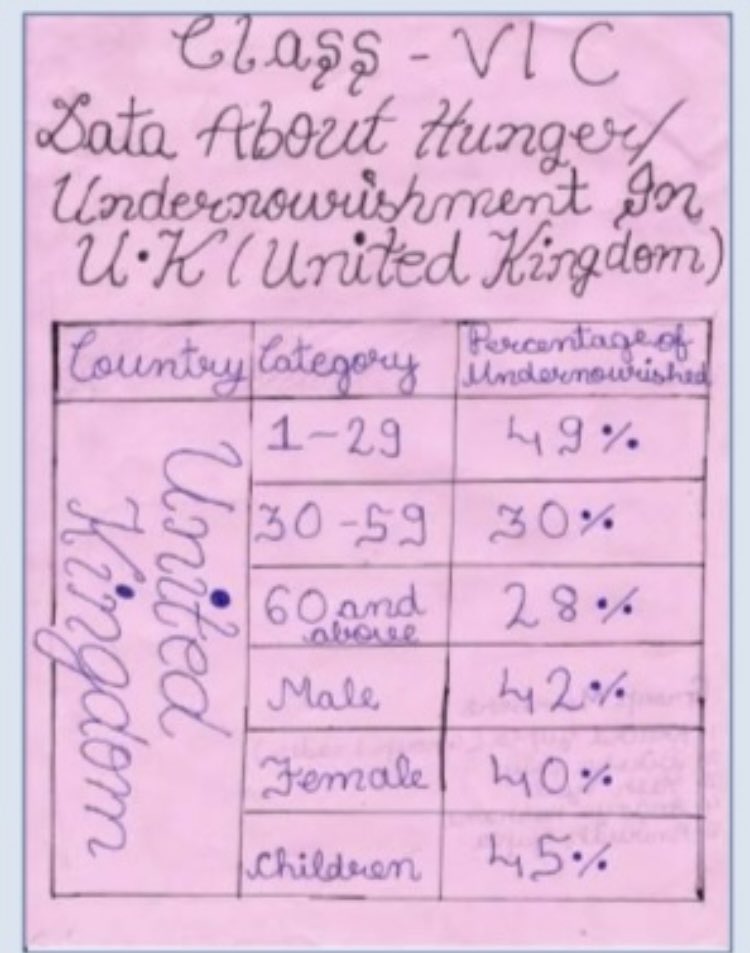 Class - VI C
Data About Hunger/
Undernourishment In
U.K (United Kingdom)
Country Category Percentage of
Undernourished
United
Kingdom
1-29 49%
30-59 30%
60 and
above 28%
Male 42%
Female 40%
Children 45%